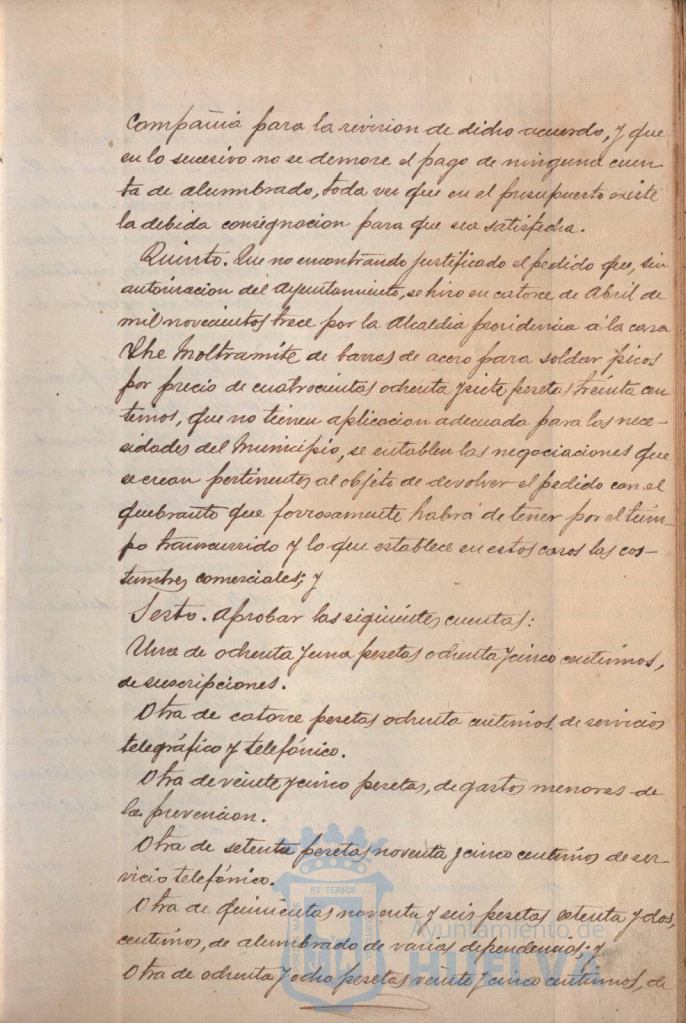 Compañia para la revision de dicho acuerdo, y que
en lo sucesivo no se demore el pago de ninguna cuen-
ta de alumbrado, toda vez que en el presupuesto existe
la debida consignacion para que sea satisfecha.
Quinto. Que no encontrando justificado el pedido que, sin
autorizacion del Ayuntamiento, se hizo en catorce de Abril de
mil novecientos trece por la Alcaldia providencia á la casa
The Moltramite de barras de acero para soldar picos
por precio de cuatrocientas ochenta y siete pesetas treinta cen
timos, que no tienen aplicacion adecuada para las nece-
sidades del Municipio, se entablen las negociaciones que
se crean pertinentes al objeto de devolver el pedido con el
quebranto que forzosamente habrá de tener por el tiem-
po transcurrido y lo que establece en estos casos las cos-
tumbres comerciales; y
Sesto. Aprobar las siguientes cuentas:
Una de ochenta y una pesetas ochenta y cinco centimos,
de suscripciones.
Otra de catorce pesetas ochenta centimos, de servicios
telegráfico y telefónico.
Otra de veinte y cinco pesetas, de gastos menores de
la prevencion.
Otra de setenta pesetas noventa y cinco centimos de ser-
vicio telefónico.
Otra de quinientas noventa y seis pesetas setenta y dos,
centimos, de alumbrado de varias dependencias; y
Otra de ochenta y ocho pesetas veinte y cinco centimos, de
Ayuntamiento de
HUELVA
PORTUS MARIS
ET TERRÆ
CUSTODIA